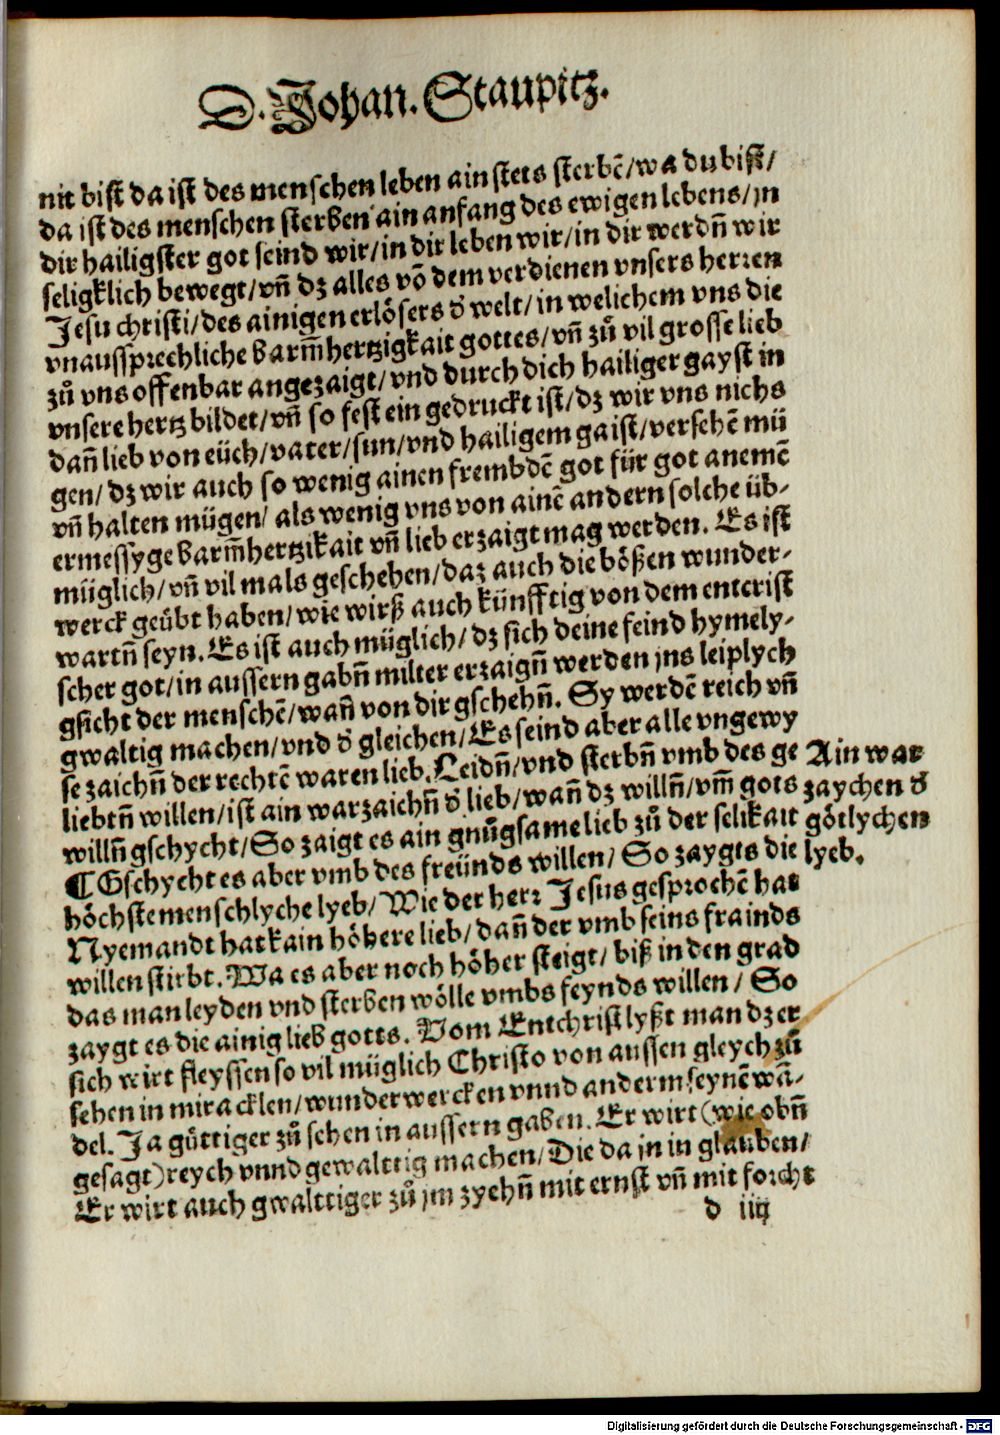 D. Johan. Staupitz.
nit bist da ist des menschen leben ain stets sterbē/wa du bist/
da ist des menschen sterben ain anfang des ewigen lebens/jn
dir hailigster got seind wir/in dir leben wir/in dir werdñ wir
seligklich bewegt/vñ dz alles vō dem verdienen vnsers herren
Jesu christi/des ainigen erlösers ď welt/in welichem vns die
vnaussprechliche barm̃hertzigkait gottes/vñ zů vil grosse lieb
zů vns offenbar angezaigt/vnd durch dich hailiger gayst in
vnsere hertz bildet/vñ so fest ein gedruckt ist/dz wir vns nichs
dañ lieb von eüch/vater/sun/vnd hailigem gaist/versehē mü
gen/dz wir auch so wenig ainen frembdē got für got anemē
vñ halten mügen/als wenig vns von ainē andern solche üb-
ermessyge barm̃hertzikait vñ lieb erzaigt mag werden. Es ist
müglich/vñ vil mals geschehen/daz auch die bößen wunder-
werck geübt haben/wie wirß auch künfftig von dem entcrist
wartñ seyn. Es ist auch müglich/dz sich deine feind hymely-
scher got/in aussern gabñ milter erzaigñ werden jns leiplych
gsicht der menschē/wañ von dir gschehñ. Sy werdē reich vñ
gwaltig machen/vnd ď gleichen/Es seind aber alle vngewy
se zaichñ der rechtē waren lieb. Leidñ/vnd sterbñ vmb des ge
liebtñ willen/ist ain warzaichñ ď lieb/wañ dz willñ/vm̃ gots
willñ gschycht/So zaigt es ain gnůgsame lieb zů der selikait
¶ Gschycht es aber vmb des freünds willen/So zaygts die
höchste menschlyche lyeb/Wie der herr Jesus gesprochē hat
Nyemandt hat kain höhere lieb/dañ der vmb seins frainds
willen stirbt. Wa es aber noch höher steigt/biß in den grad
das man leyden vnd sterben wölle vmbs feynds willen/So
zaygt es die ainig lieb gotts. Vom Entchrist lyßt man dz er
sich wirt fleyssen so vil müglich Christo von aussen gleych zů
sehen in miracklen/wunderwercken vnnd anderm seynē wā-
del. Ja güttiger zů sehen in aussern gaben. Er wirt (wie obñ
gesagt) reych vnnd gewalttig machen/Die da jn in glauben/
Er wirt auch gwalttiger zů jm zyehñ mit ernst vñ mit forcht
d iiij
Ain war
zaychen ď
götlychen
lyeb.
Digitalisierung gefördert durch die Deutsche Forschungsgemeinschaft - DFG